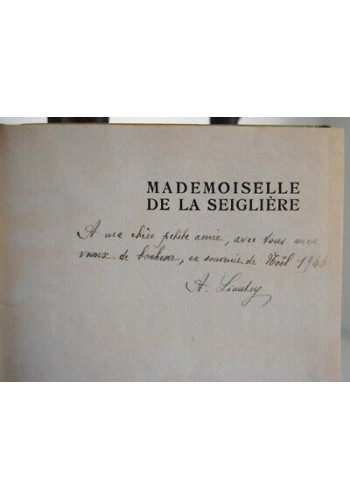 MADEMOISELLE
DE LA SEIGLIÈRE
A ma chère petite amie, avec tous mes
vœux de bonheur, en souvenir de Noël
A.